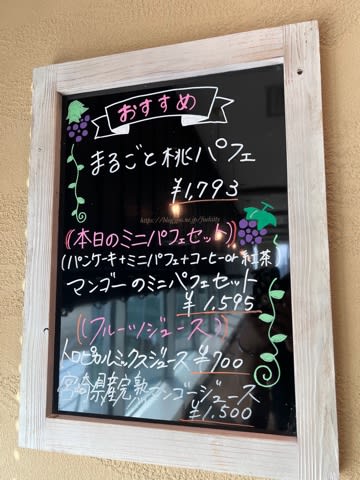 おすすめ
まるごと桃パフェ
¥1,793
((本日のミニパフェセット))
(パンケーキ+ミニパフェ+コーヒーor紅茶)
マンゴーのミニパフェセット
¥1,595
((フルーツジュース))
トロピカルミックスジュース ¥700
宮崎県産完熟マンゴージュース
¥1,500